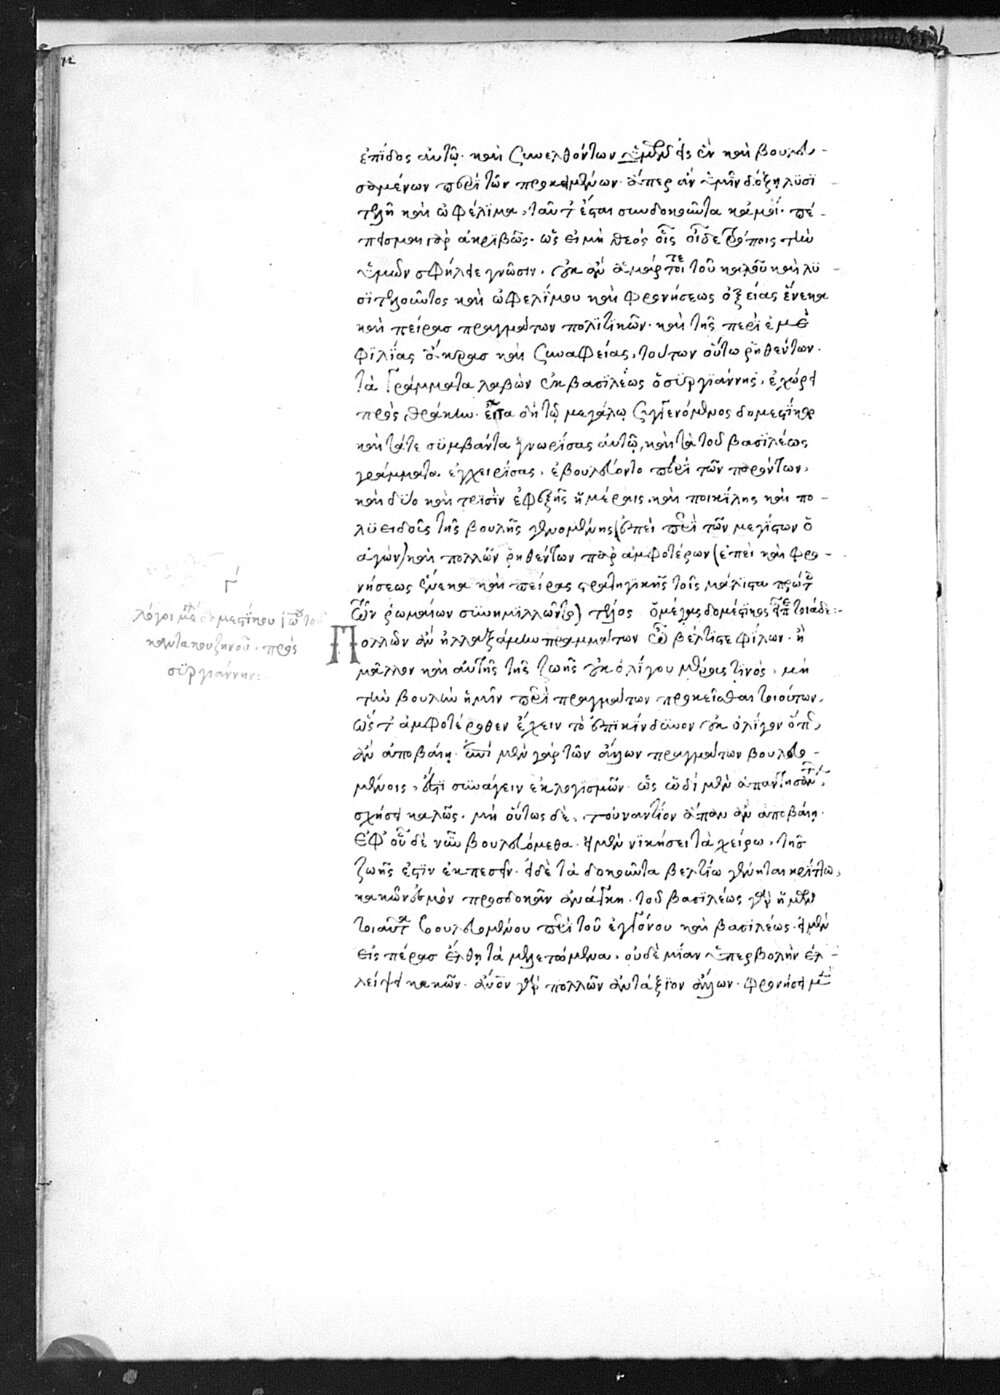 ἐπίδος αὐτῷ· καὶ συνελθόντων ὑμῶν εἰς ἓν καὶ βουλευ-
σομένων περὶ τῶν προκειμένων· ἅπερ ἂν ὑμῖν δόξῃ λυσι
τελῆ καὶ ὠφέλιμα, ταῦτ' ἔσται συνδοκοῦντα κἀμοί· πέ-
πεισμαι γὰρ ἀκριβῶς· ὡς εἰ μὴ θεὸς οἷς οἶδε τρόποις τὴν
ὑμῶν σφήλειε γνῶσιν, οὐκ ἂν ἁμάρτοιτε τοῦ καλοῦ καὶ λυ-
σιτελοῦντος καὶ ὠφελίμου καὶ φρονήσεως ὀξείας ἕνεκα
καὶ πείρας πραγμάτων πολιτικῶν· καὶ τῆς περὶ ἐμὲ
φιλίας ἄκρας καὶ συναφείας, τούτων οὕτω ῥηθέντων·
τὰ γράμματα λαβὼν ἐκ βασιλέως ὁ συργιάννης, ἐχώρει
πρὸς θράκην· εἶτα δὴ τῷ μεγάλῳ συγγενόμενος δομεστίκῳ
καὶ τά τε συμβάντα γνωρίσας αὐτῷ, καὶ τὰ τοῦ βασιλέως
γράμματα ἐγχειρίσας, ἐβουλεύοντο περὶ τῶν παρόντων,
καὶ δυσὶ καὶ τρισὶν ἐφεξῆς ἡμέραις· καὶ ποικίλης καὶ πο-
λυειδοῦς τῆς βουλῆς γενομένης (ἐπεὶ περὶ τῶν μεγίστων ὁ
ἀγὼν) καὶ πολλῶν ῥηθέντων παρ' ἀμφοτέρων (ἐπεὶ καὶ φρο-
νήσεως ἕνεκα καὶ πείρας στρατηγικῆς τοῖς μάλιστα πρώτοις
τῶν ῥωμαίων συνημιλλῶντο) τέλος ὁ μέγας δομέστικος εἶπε τοιάδε:-
Πολλῶν ἂν ἠλλαξάμην πραγμάτων ὦ βέλτιστε φίλων· ἢ
μᾶλλον καὶ αὐτῆς τῆς ζωῆς οὐκ ὀλίγου μέρους τινός, μὴ
τὴν βουλὴν ἡμῖν περὶ πραγμάτων προκεῖσθαι τοιούτων,
ὥστ' ἀμφοτέρωθεν ἔχειν τὸ ἐπικίνδυνον οὐκ ὀλίγον ὅπερ
ἂν ἀποβαίη· ἐπὶ μὲν γὰρ τῶν ἄλλων πραγμάτων βουλευο-
μένοις, ἔστι συνάγειν ἐκ λογισμῶν· ὡς ὡδὶ μὲν ἀπαντῆσαν,
σχήσει καλῶς, μὴ οὕτως δὲ, τοὐναντίον ἅπαν ἂν ἀποβαίη·
ἐφ' οὗ δὲ νῦν βουλευόμεθα· εἰ μὲν νικήσει τὰ χείρω, τῆς
ζωῆς ἐστὶν ἐκπεσεῖν· εἰ δὲ τὰ δοκοῦντα βελτίω γένηται κρείττω,
κακῶν ἑσμὸν προσδοκᾶν ἀνάγκη· τοῦ βασιλέως γὰρ ἡμῖν
τοιαῦτα βουλευομένου περὶ τοῦ ἐγγόνου καὶ βασιλέως· εἰ μὲν
εἰς πέρας ἔλθῃ τὰ μελετώμενα, οὐδὲ μίαν ὑπερβολὴν ἐλ-
λείψει κακῶν· ἀνὴρ γὰρ πολλῶν ἀντάξιος ἄλλων· φρονήσει μὲν
Γ
λόγοι μεγάλου δομεστίκου ἰωάννου τοῦ
καντακουζηνοῦ· πρὸς
συργιάννην: